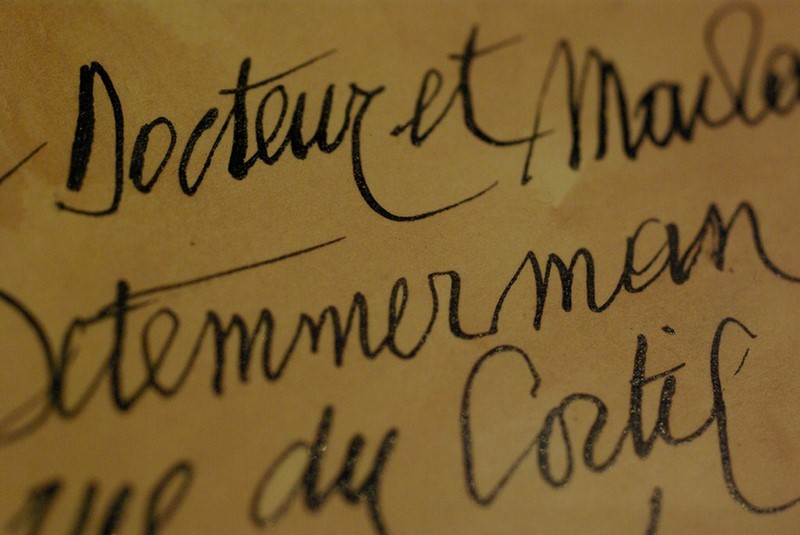 Docteur et Mada
Detemmerman
rue du Cortil